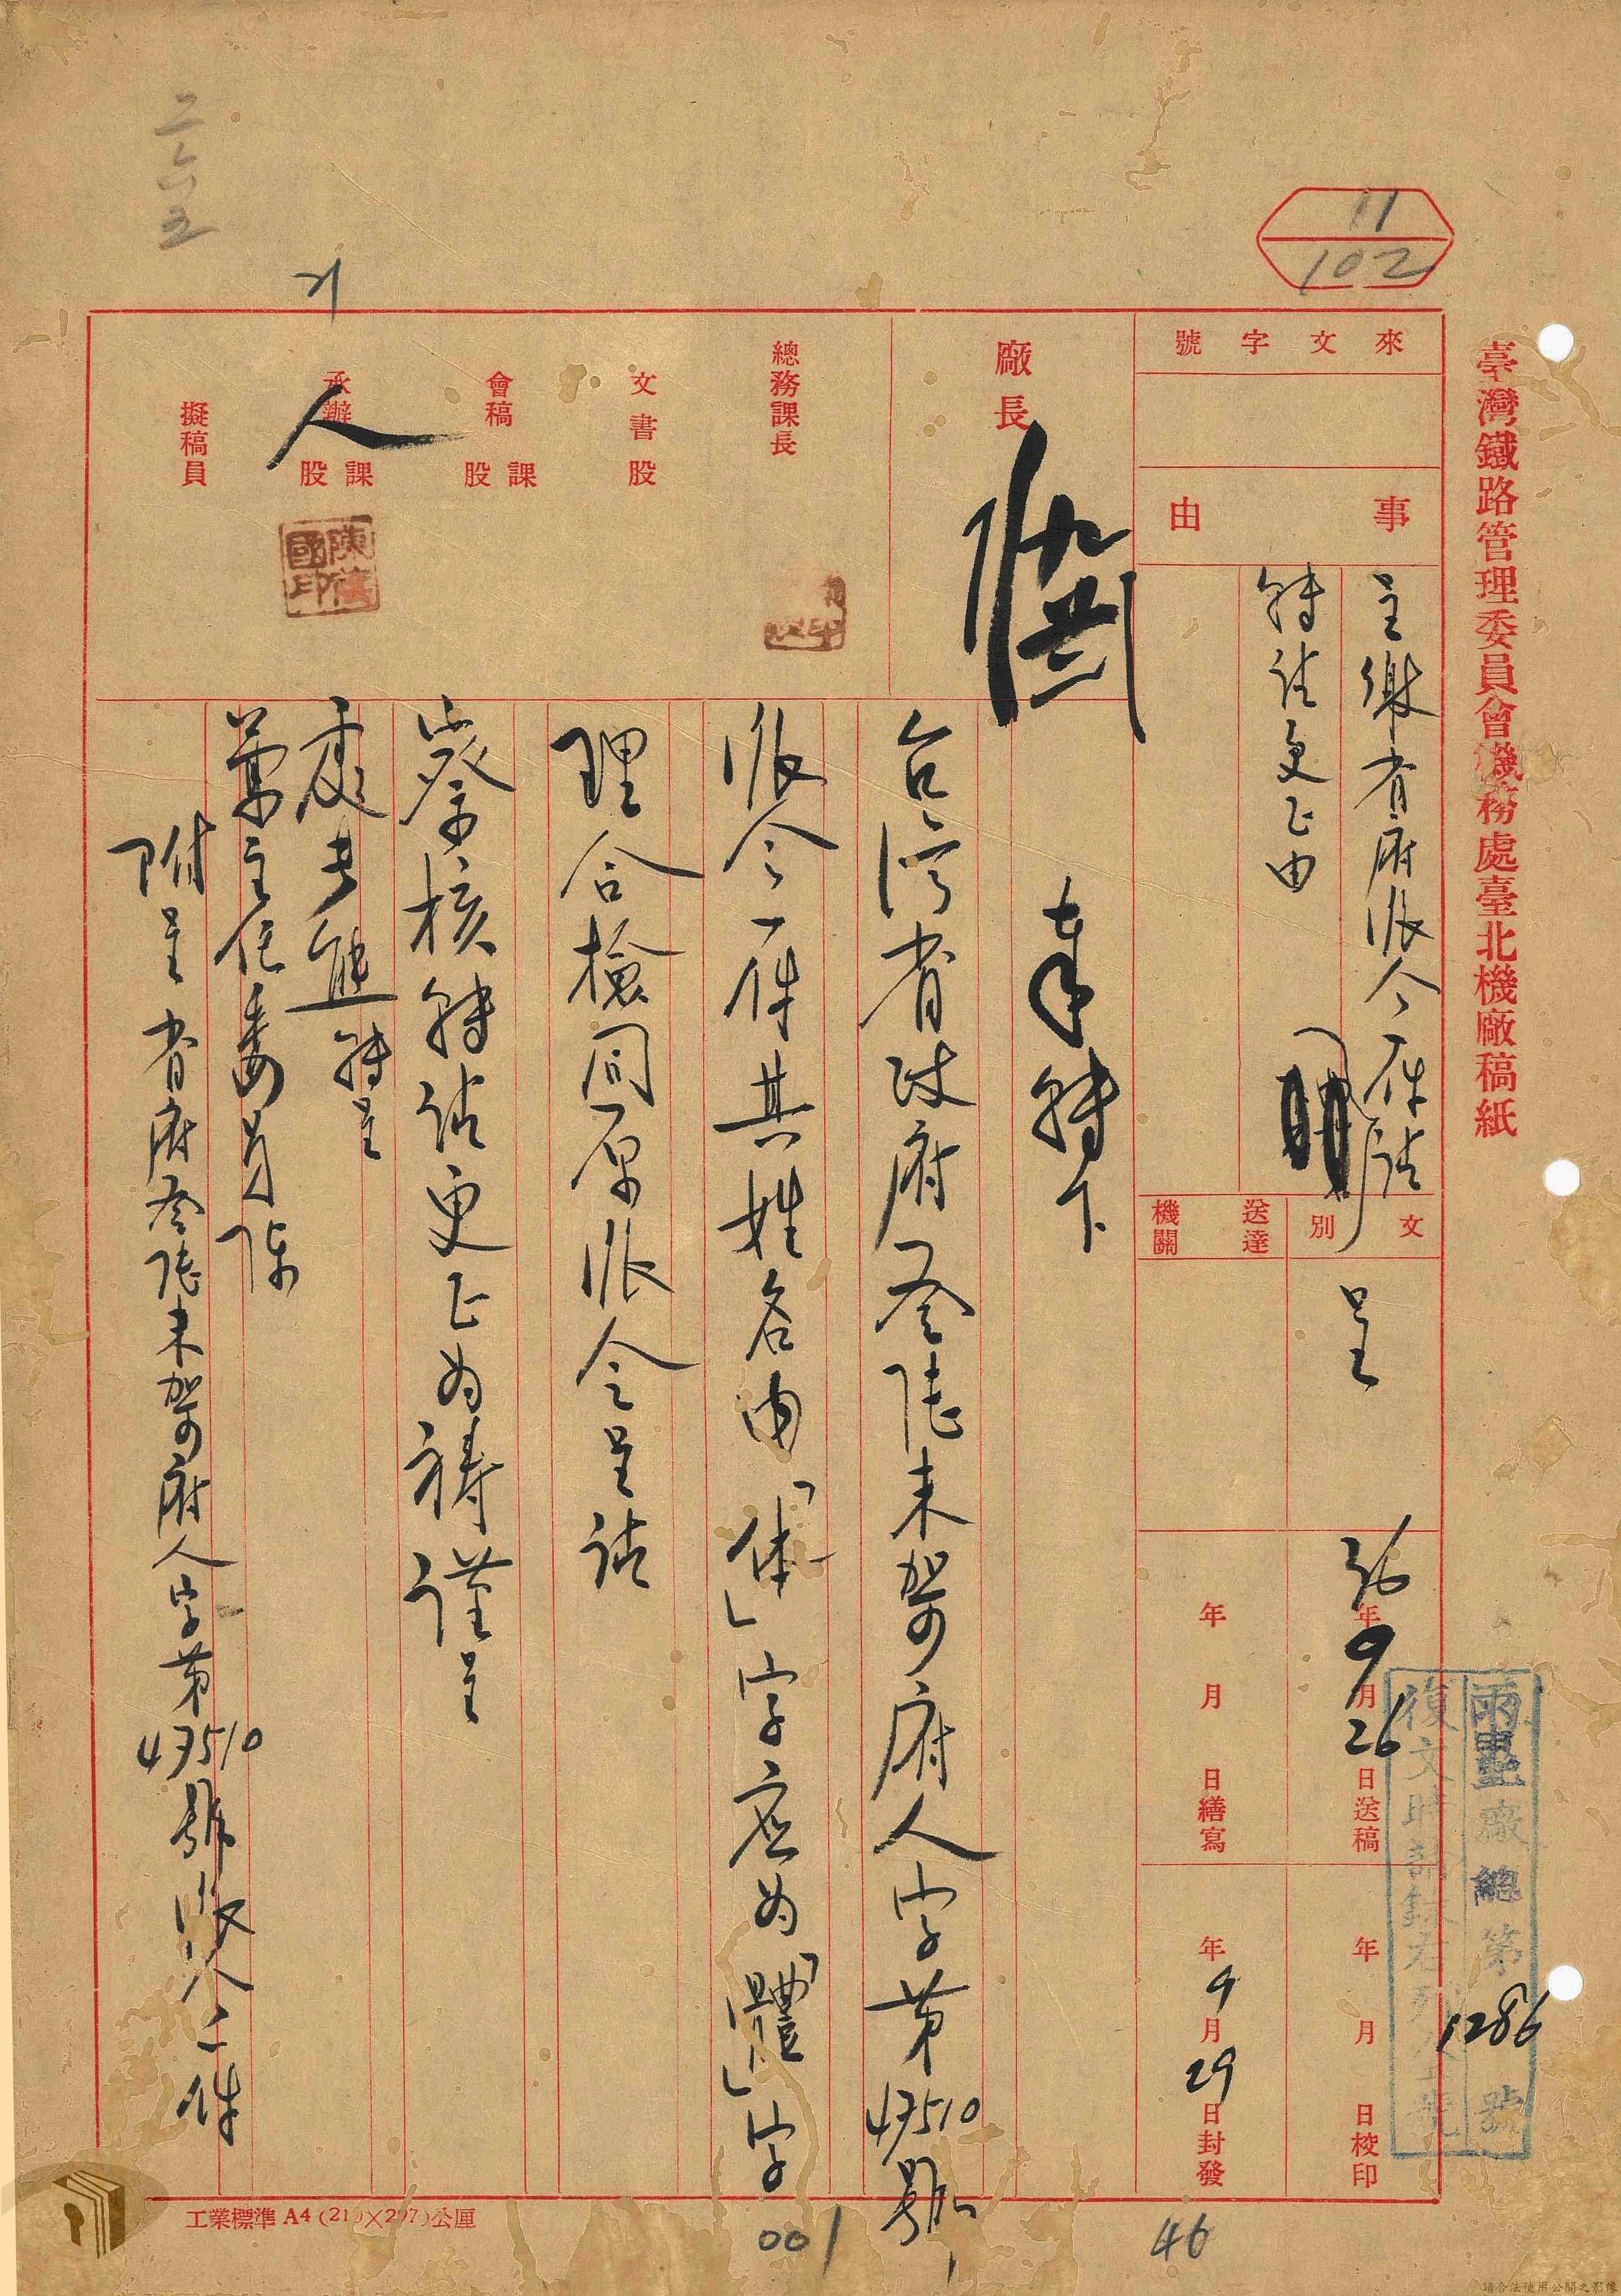 臺灣鐵路管理委員會機務處臺北機廠稿紙
11
102
二六五
來文字號
事由
呈繳省府派令一件請
轉請更正由
文別
呈
送達機關
36年9月26日送稿
年月日繕寫
年月日校印
年9月29日封發
雨重廠總第1286號
復文時請錄
廠長
總務課長
文書股
會稿課股
承辦課股
人
擬稿員
奉轉下
台灣省政府參陸未架府人字第47510號
派令一件其姓名內「体」字應為「體」字
理合檢同原派令呈請
察核轉請更正為禱謹呈
處長 轉呈
主任委員陳
附呈省府參陸未架府人字第47510號派令一件
工業標準A4(210×297)公厘
001
46
請合法使用公開之影像